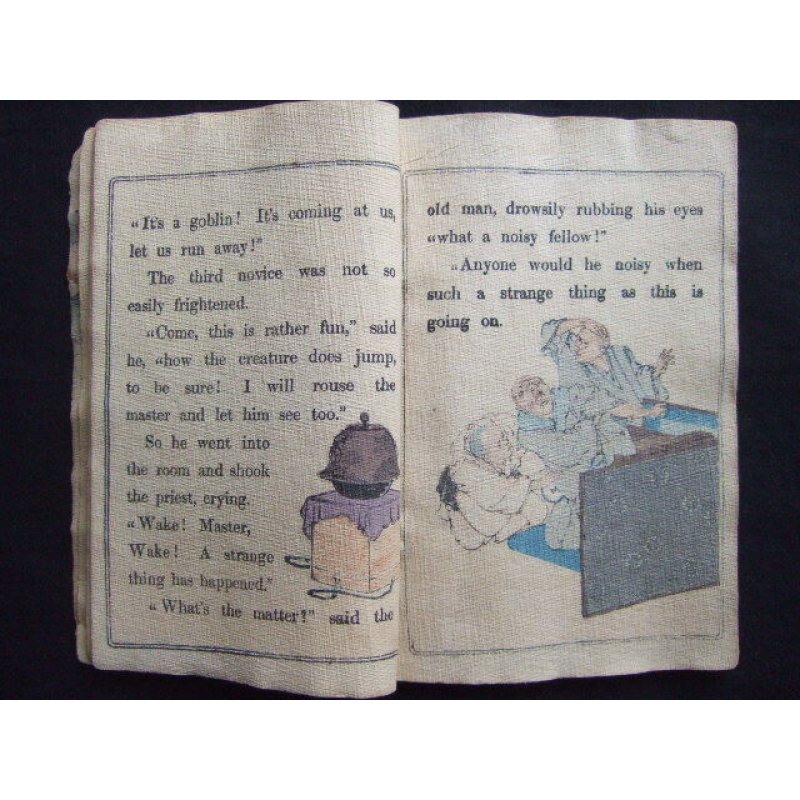 “It's a goblin! It's coming at us,
let us run away!”
The third novice was not so
easily frightened.
“Come, this is rather fun,” said
he, “how the creature does jump,
to be sure! I will rouse the
master and let him see too.”
So he went into
the room and shook
the priest, crying.
“Wake! Master,
Wake! A strange
thing has happened.”
“What's the matter?” said the
old man, drowsily rubbing his eyes
“what a noisy fellow!”
“Anyone would he noisy when
such a strange thing as this is
going on.